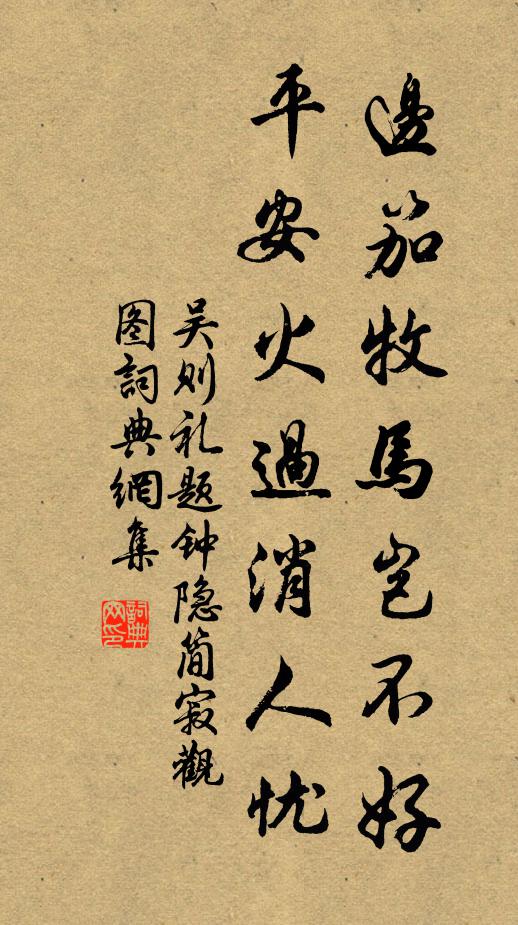 邊笳牧馬豈不好
平安火過消人忧
吴则礼题钟隐简寂觀
图詞典網集
詞典网印